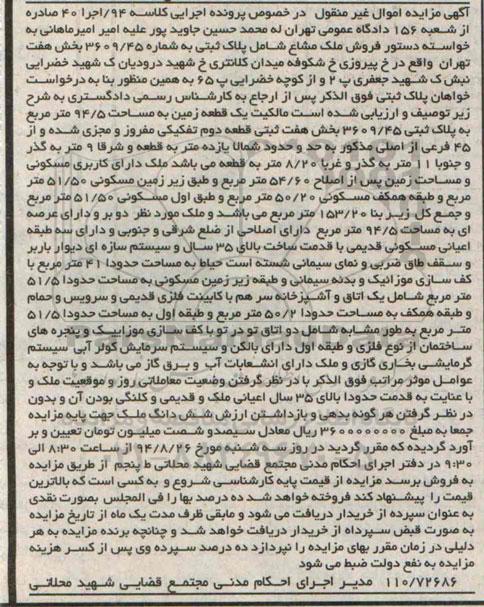 آگهی مزایده اموال غیر منقول  در خصوص پرونده اجرایی کلاسه ۹۴/اجرا ۴۰ صادره
از شعبه ۱۵۶ دادگاه عمومی تهران له محمد حسین جاوید پور علیه امیر امیرماهانی به
خواسته دستور فروش ملک مشاع شامل پلاک ثبتی به شماره ۳۶۰۹/۴۵ بخش هفت
تهران  واقع در خ پیروزی خ شکوفه میدان کلانتری خ شهید درودیان ک شهید خضرایی
نبش ک شهید جعفری پ ۲ و از کوچه خضرایی پ ۶۵ به همین منظور بنا به درخواست
خواهان پلاک ثبتی فوق الذکر پس از ارجاع به کارشناس رسمی دادگستری به شرح
زیر توصیف و ارزیابی شده است مالکیت یک قطعه زمین به مساحت ۹۴/۵ متر مربع
به پلاک ثبتی ۳۶۰۹/۴۵ بخش هفت ثبتی قطعه دوم تفکیکی مفروز و مجزی شده و از
۴۵ فرعی از اصلی مذکور به حد و حدود شمالا یازده متر به قطعه و شرقا ۹ متر به گذر
و جنوبا ۱۱ متر به گذر و غربا ۸/۲۰ متر به قطعه می باشد ملک دارای کاربری مسکونی
و مساحت زمین پس از اصلاح ۵۴/۶۰ متر مربع و طبق زیر زمین مسکونی ۵۱/۵۰ متر
مربع و طبقه همکف مسکونی ۵۰/۲۰ متر مربع و طبق اول مسکونی ۵۱/۵۰ متر مربع
و جمع کل زیر بنا ۱۵۳/۲۰ متر مربع می باشد و ملک مورد نظر  دو بر و دارای عرصه
ای به مساحت ۹۴/۵ متر مربع  دارای اصلاحی از ضلع شرقی و جنوبی و دارای سه طبقه
اعیانی مسکونی قدیمی با قدمت ساخت بالای ۳۵ سال و سیستم سازه ای دیوار باربر
و سقف طاق ضربی و نمای سیمانی شسته است حیاط به مساحت حدودا ۴۱ متر مربع با
کف سازی موزائیک و بدنه سیمانی و طبقه زیر زمین مسکونی به مساحت حدودا ۵۱/۵
متر مربع شامل یک اتاق و آشپزخانه سر هم با کابینت فلزی قدیمی و سرویس و حمام
و طبقه همکف به مساحت حدودا ۵۰/۲ متر مربع و طبقه اول به مساحت حدودا ۵۱/۵
متر مربع به طور مشابه شامل دو اتاق تو در تو با کف سازی موزاییک و پنجره های
ساختمان از نوع فلزی و طبقه اول دارای بالکن و سیستم سرمایش کولر آبی سیستم
گرمایشی بخاری گازی و ملک دارای انشعابات آب  و برق گاز می باشد و با توجه به
عوامل موثر مراتب فوق الذکر با در نظر گرفتن وضعیت معاملاتی روز و موقعیت ملک و
با عنایت به قدمت حدودا بالای ۳۵ سال اعیانی ملک و قدیمی و کلنگی بودن آن و بدون
در نظر گرفتن هر گونه بدهی و بازداشتن ارزش شش دانگ ملک جهت پایه مزایده
جمعا به مبلغ ۳۶۰۰۰۰۰۰۰۰ ریال معادل سیصد و شصت میلیون تومان تعیین و بر
آورد گردیده که مقرر گردید در روز سه شنبه مورخ ۹۴/۸/۲۶ از ساعت ۸:۳۰ الی
۹:۳۰ در دفتر اجرای احکام مدنی مجتمع قضایی شهید محلاتی ط پنجم  از طریق مزایده
به فروش برسد مزایده از قیمت پایه کارشناسی شروع و به کسی است که بالاترین
قیمت را  پیشنهاد کند فروخته خواهد شد ده درصد بها را فی المجلس  بصورت نقدی
به عنوان سپرده از خریدار دریافت می شود و مابقی ظرف مدت یک ماه از تاریخ مزایده
به صورت قبض سپرداه از خریدار دریافت خواهد شد و چنانچه برنده مزایده به هر
دلیلی در زمان مقرر بهای مزایده را نپردازد ده درصد سپرده وی پس از کسر هزینه
مزایده به نفع دولت ضبط می شود
۱۱۰/۷۲۶۸۶  مدیر اجرای احکام مدنی مجتمع قضایی شهید محلاتی